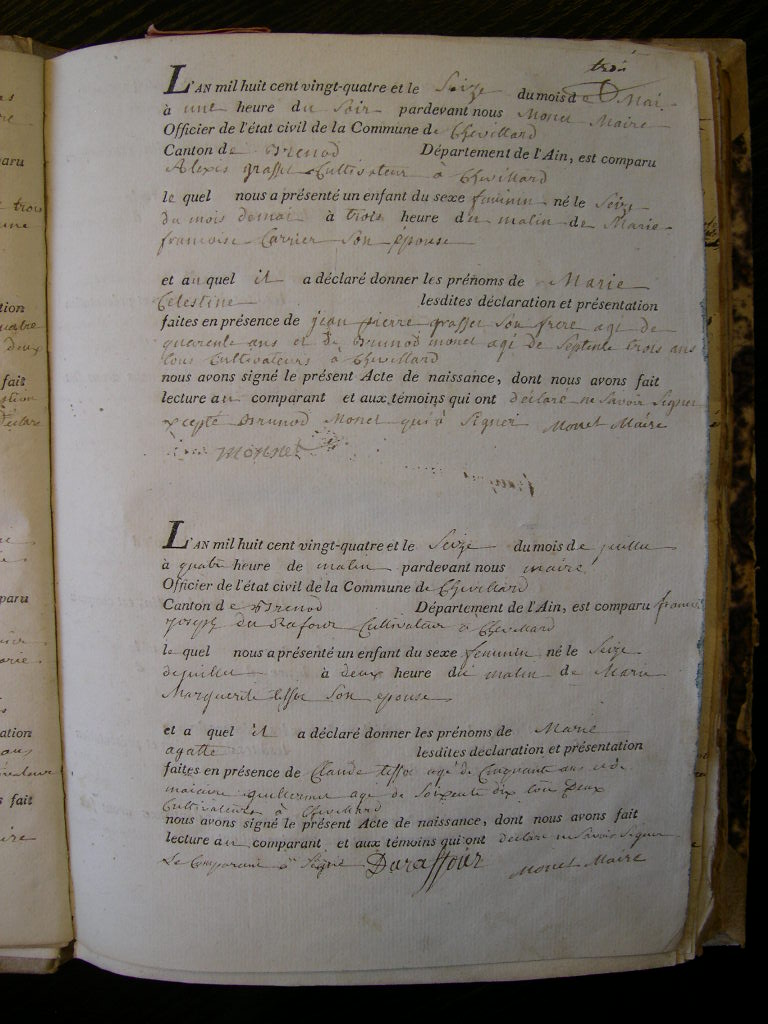 trois
L'AN mil huit cent vingt-quatre et le Seize du mois de Mai
à une heure du Soir pardevant nous Monet Maire
Officier de l'état civil de la Commune de Chevillard
Canton de Brenod Département de l'Ain, est comparu
Alexis grasset Cultivateur à Chevillard
le quel nous a présenté un enfant du sexe feminin né le Seize
du mois demai à trois heure du matin de Marie
francoise Carrier Son épouse
et au quel il a déclaré donner les prénoms de Marie
Celestine lesdites déclaration et présentation
faites en présence de jean pierre grasset Son frere agé de
quarente ans et de Brunod monet agé de Septente trois ans
tous Cultivateurs à Chevillard
nous avons signé le présent Acte de naissance, dont nous avons fait
lecture au comparant et aux témoins qui ont déclaré ne Savoir Signer
excepté Brunod Monet qui à Signer Monet Maire
monnet
L'AN mil huit cent vingt-quatre et le Seize du mois de juillet
à quatre heure de matin pardevant nous maire
Officier de l'état civil de la Commune de Chevillard
Canton de Brenod Département de l'Ain, est comparu francois
joseph du Rafour Cultivateur à Chevillard
le quel nous a présenté un enfant du sexe feminin né le Seize
dejuillet à deux heure du matin de Marie
Marguerite tissot Son épouse
et a quel il a déclaré donner les prénoms de Marie
agatte lesdites déclaration et présentation
faites en présence de Claude tissot agé de Cinquante ans et de
guillermet agé de Soixente dix tous Deux
Cultivateurs à Chevillard
nous avons signé le présent Acte de naissance, dont nous avons fait
lecture au comparant et aux témoins qui ont déclaré ne Savoir Signer
Le Comparant à Signé Duraffour Monet Maire